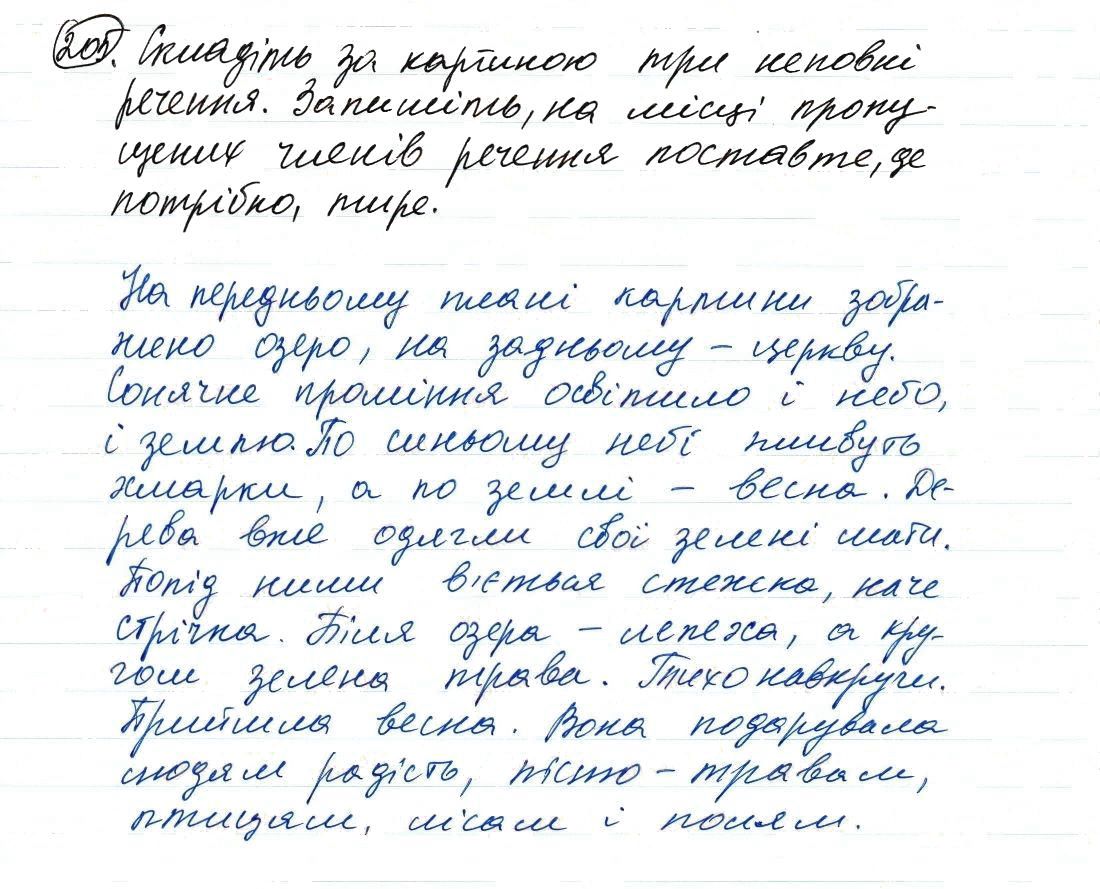 205. Складіть за картиною три неповні
речення. Запишіть, на місці пропу-
щених членів речення поставте, де
потрібно, тире.
На передньому плані картини зобра-
жено озеро, на задньому – церкву.
Сонячне проміння освітило і небо,
і землю. По синьому небі пливуть
хмарки, а по землі – весна. Де-
рева вже одягли свої зелені шати.
Попід ними в'ється стежка, наче
стрічка. Біля озера – лепеха, а кру-
гом зелена трава. Тихо навкруги.
Прийшла весна. Вона подарувала
людям радість, пісню – травам,
птицям, лісам і полям.